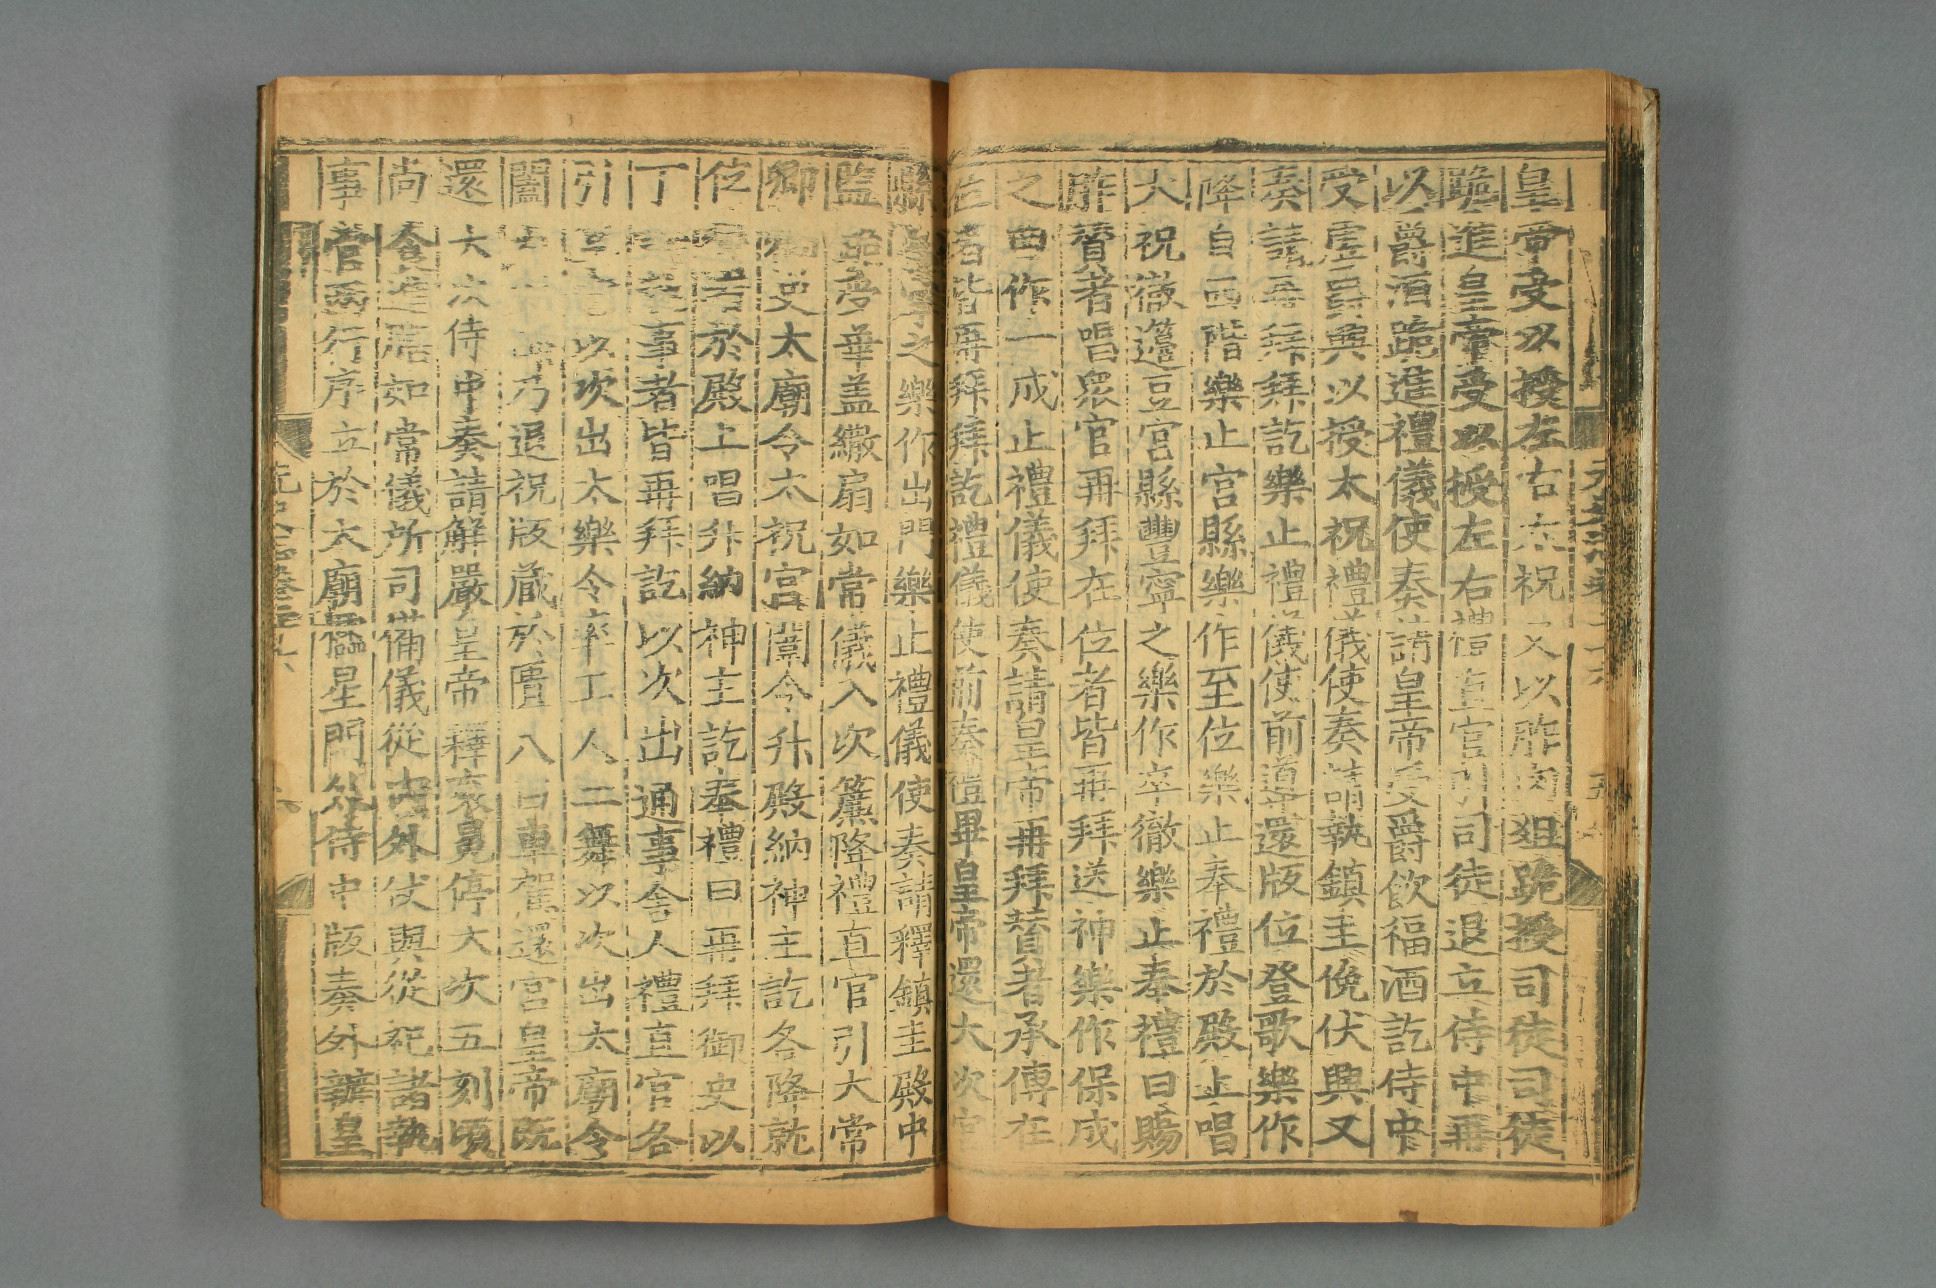 皇帝受以授左右太祝又以胙肉俎跪授司徒司徒
跪進皇帝受以授左右禮直官引司徒退立侍中再
以爵酒跪進禮儀使奏請皇帝受爵飲福酒訖侍中
受虛爵興以授太祝禮儀使奏請執鎮圭俛伏興又
奏請再拜拜訖樂止禮儀使前導還版位登歌樂作
降自西階樂止宮縣樂作至位樂止奉禮於殿上唱
太祝徹籩豆宮縣豐寧之樂作卒徹樂止奉禮曰賜
胙贊者唱眾官再拜在位者皆再拜送神樂作保成
之曲作一成止禮儀使奏請皇帝再拜贊者承傳在
位者皆再拜拜訖禮儀使前奏禮畢皇帝還大次宮
縣昌寧之樂作出門樂止禮儀使奏請釋鎮圭殿中
監跪受華盖繖扇如常儀入次簾降禮直官引太常
卿御史太廟令太祝宮闈令升殿納神主訖各降就
位贊者於殿上唱升納神主訖奉禮曰再拜御史以
下諸執事者皆再拜訖以次出通事舍人禮直官各
引享官以次出太樂令率工人二舞以次出太廟令
闔戶以降乃退祝版藏於匱八曰車駕還宮皇帝既
還大次侍中奏請解嚴皇帝釋衮冕停大次五刻頃
尚食進膳如常儀所司備儀從內外仗與從祀諸執
事官兩行序立於太廟櫺星門外侍中版奏外辦皇